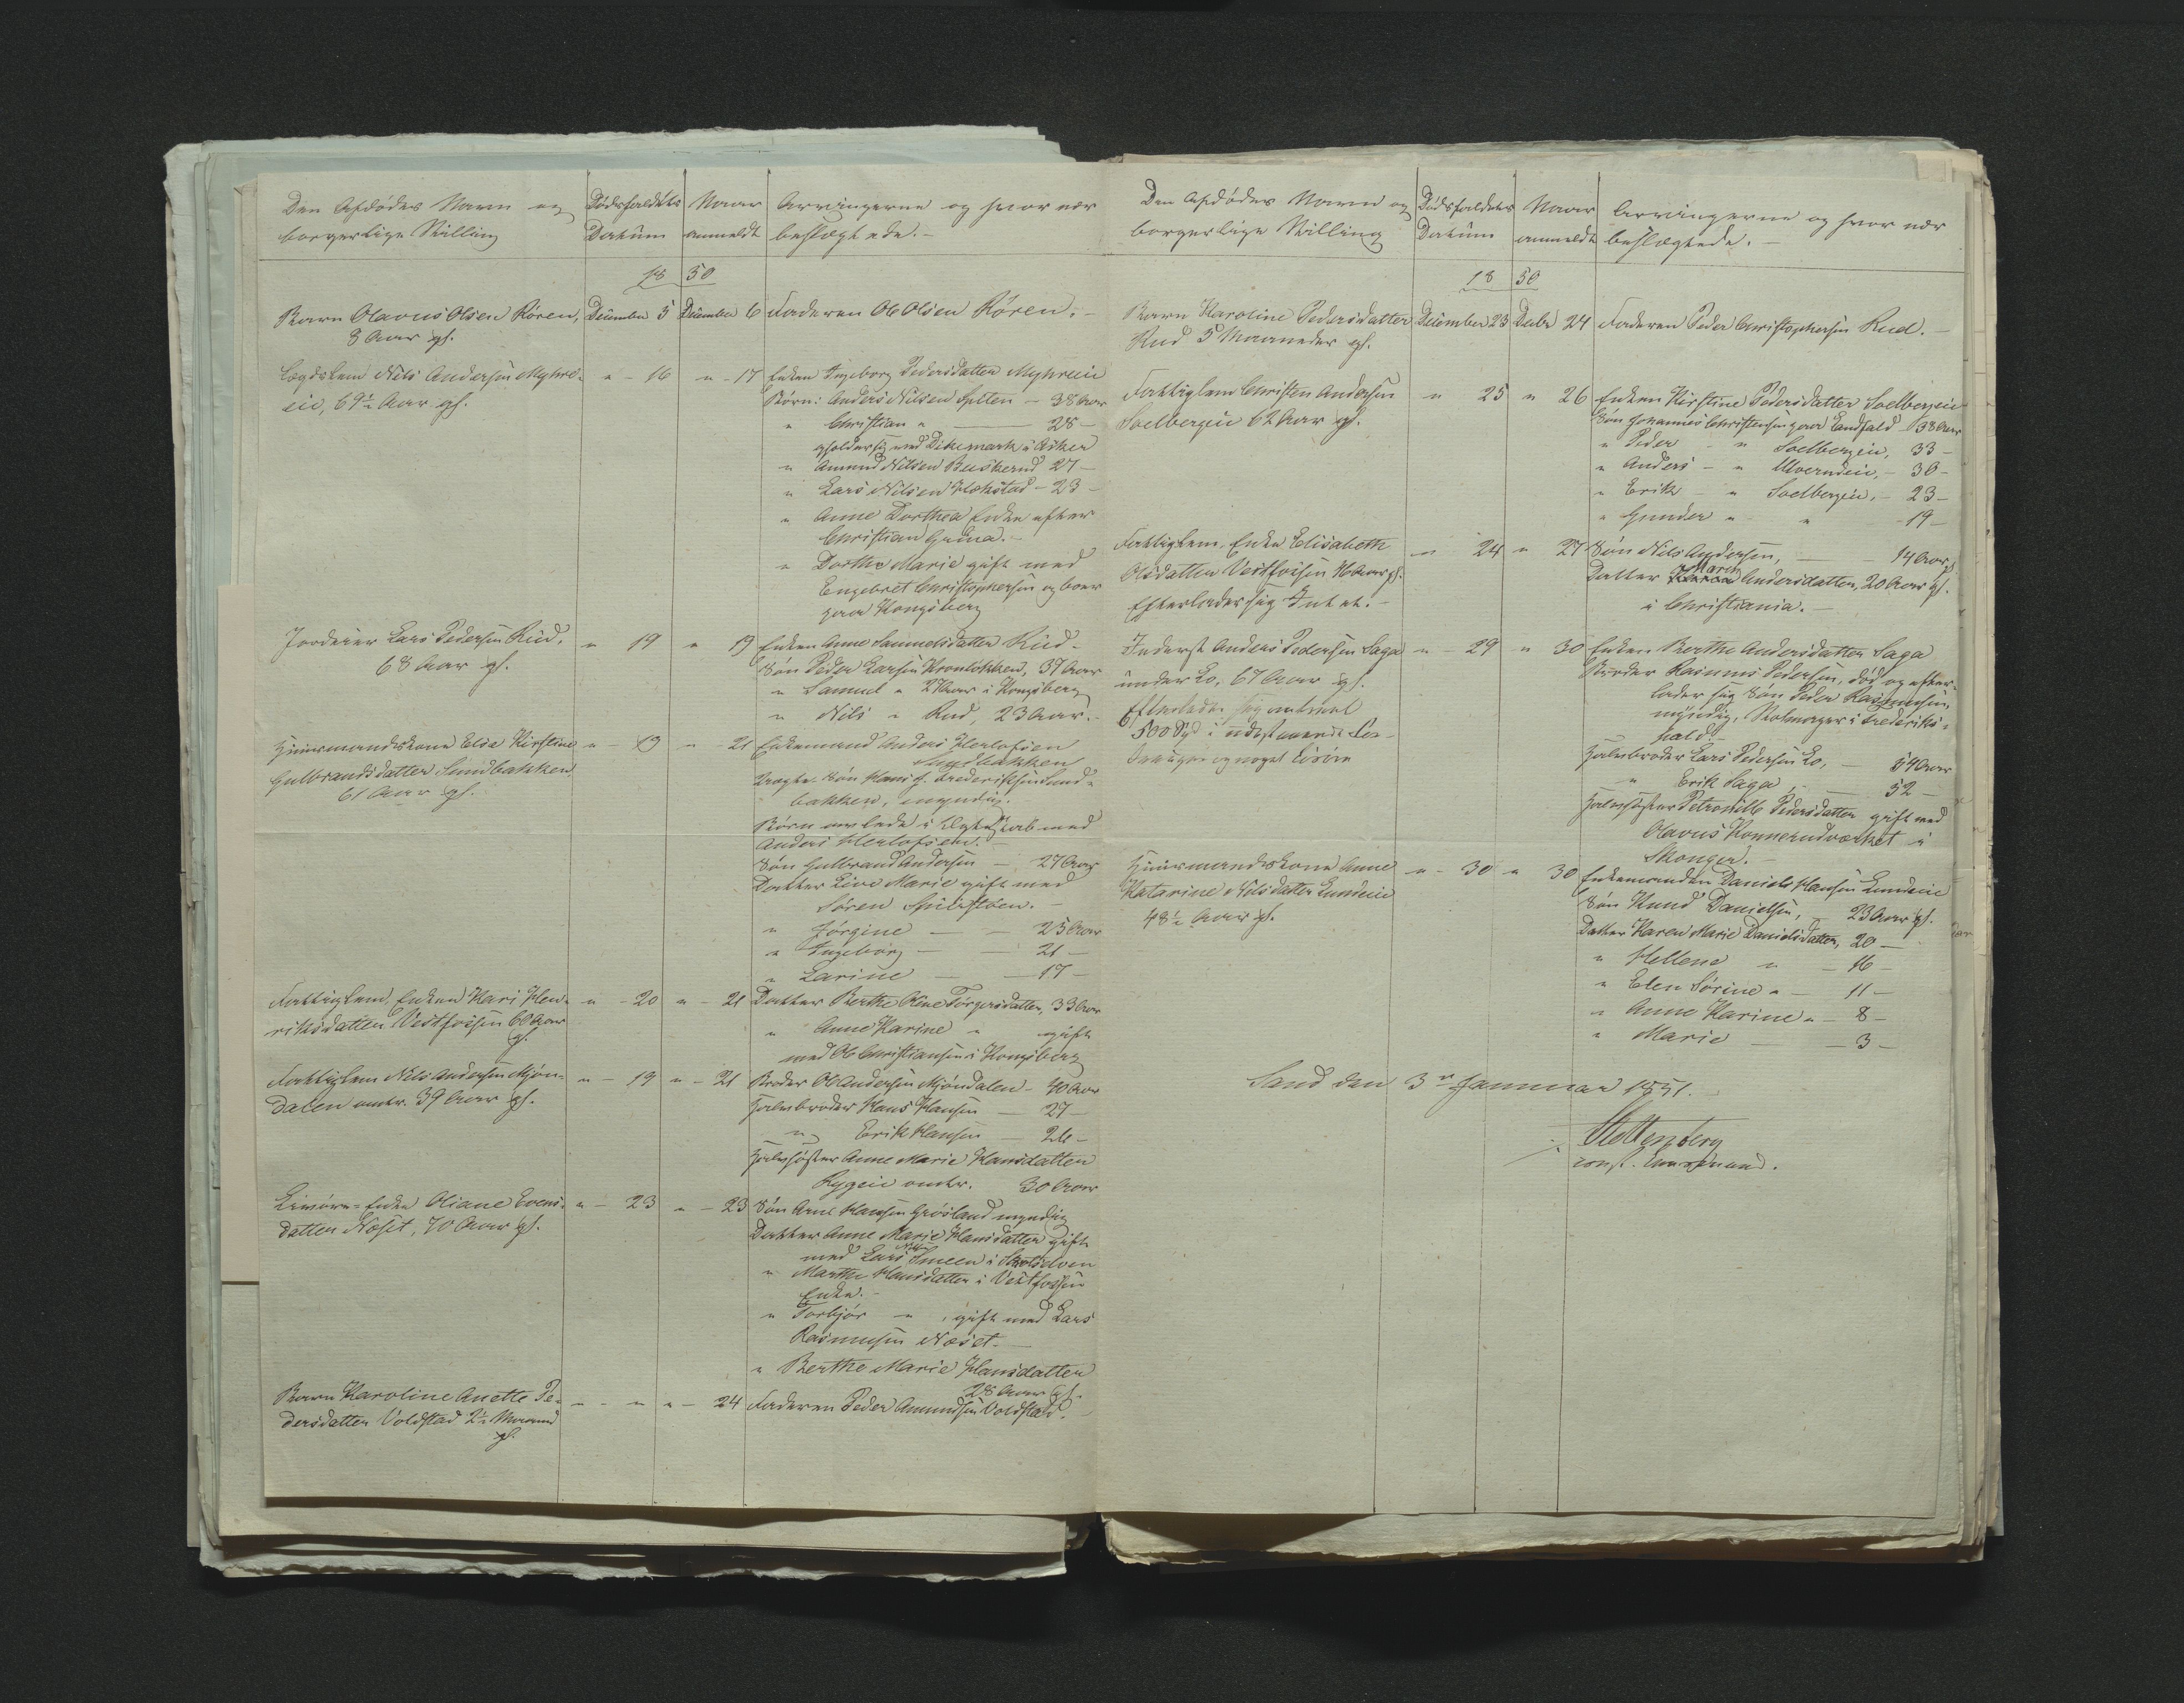 Den Afdødes Navn og
borgerlige Stilling
Dødsfaldets
Datum
Naar
anmeldt
Arvingerne og hvor nær
beslægtede.-
18 50
Barn Olavus Olsen Røren,
8 Aar gl.
December 5 December 6 Faderen Ole Olsen Røren.-
Lægdslem Nils Andersen Myhre-
eie, 69½ Aar gl.
" - 16 " - 17 Enken Ingeborg Pedersdatter Myhreeie
Børn: Anders Nilsen - 38 Aar
" Christian " - 28 -
opholder sig ved Dikemark i Asker
" Amund Nilsen Buskerud 27 -
" Lars Nilsen Hokstad - 23 -
" Anne Dorthea Enke efter
Christian
" Dorthe Marie gift med
Engebret Christophersen og boer
paa Kongsberg
Jordeier Lars Pedersen Rud,
68 Aar gl.
" 19 " 19 Enken Anne Samuelsdatter Rud-
Søn Peder Larsen 37 Aar
" Samuel " 27 Aar i Kongsberg
" Nils " Rud, 23 Aar.-
Huusmandskone Elia Kirstine
Gulbrandsdatter Sundbakken
61 Aar gl.
" - 19 - " - 21 Enkemand Anders Herlofsen
Sundbakken
Søn Hans J. Frederiksen Sund-
bakken, myndig.
Børn avlede i Ægteskab med
Anders Herlofsen.-
Søn Gulbrand Andersen - 27 Aar
Datter Live Marie gift med
Søren
" Jørgine - 25 Aar
" Ingeborg - 21 -
" Larine - 17 -
Fattiglem, Enken Kari Hen-
riksdatter Vestfossen 60 Aar
gl.
" - 20 " - 21 Datter Berthe Oline Torgersdatter, 33 Aar
" Anne Karine " gift
med Ole Christiansen i Kongsberg
Fattiglem Nils Andersen Mjøn-
dalen omtr. 39 Aar gl.
" - 19 " - 21 Broder Ole Andersen Mjøndalen - 40 Aar
Halvbroder Hans Hansen - 27 -
" Erik Hansen - 24 -
Halvsøster Anne Marie Hansdatter
omtr. 30 Aar
Livøre-Enke Oliane Evens-
datter Næset, 70 Aar gl.
" - 23 " - 23 Søn Arne Hansen Grøsland myndig
Datter Anne Marie Hansdatter gift
med Lars Nils Smeen i Skotselven
" Marthe Hansdatter i Vestfossen
Enke.-
" Torbjør " , gift med Lars
Rasmusen Næset.-
" Berthe Marie Hansdatter
28 Aar gl.
Barn Karoline Anette Pe-
dersdatter Voldstad 2½ Maaned
gl.
" - " " - 24 Faderen Peder Amundsen Voldstad.-
Den Afdødes Navn og
borgerlige Stilling
Dødsfaldets
Datum
Naar
anmeldt
Arvingerne og hvor nær
beslægtede.-
18 50
Barn Karoline Pedersdatter
Rud 5 Maaneder gl.
December 23 Decbr 24 Faderen Peder Christophersen Rud.-
Fattiglem Christen Andersen
Soelbergeie 62 Aar gl.
" 25 " 26 Enken Kirstine Pedersdatter Soelbergeie
Søn Johannes Christensen paa Landfald - 38 Aar
" Peder " Soelbergeie, 33 -
" Anders - " 30 -
" Erik - " Soelbergeie, - 23 -
" Gunder " - " - 19 -
Fattiglem, Enke Elisabeth
Olsdatter Vestfossen 46 Aar gl.
Efterlader sig Intet.-
" 24 " 27 Søn Nils Andersen, - 14 Aar
Datter Maren Andersdatter, 20 Aar gl.
i Christiania.-
Inderst Anders Pedersen Saga
under Lo, 67 Aar gl.
Efterlader sig omtrent
500 Spd i udestaaende For-
dringer og noget Løsøre
" - 29 " 30 Enken Berthe Andersdatter Saga
Broder Rasmus Pedersen, død og efter-
lader sig Søn Peder Rasmusen,
myndig, Skomager i Frederiks-
hald.-
Halvbroder Lars Pedersen Lo, - 54 Aar
" Erik Saga, - 52 -
Halvsøster Petronille Pedersdatter gift med
Olavus Konnerudværket i
Skouger.
Huusmandskone Anne
Katarine Nilsdatter Lundeie
48½ Aar gl.
" - 30 " 30 Enkemanden Daniels Hansen Lundeie
Søn Knud Danielsen, - 23 Aar gl.
Datter Karen Marie Danielsdatter, 20 -
" Hellene " - 16 -
" Elen Sørine " - 11 -
" Anne Karine " - 8 -
" Marie - 3 -
Sand den 3 Januar 1851.
Stoltenberg
const. Lensmand.